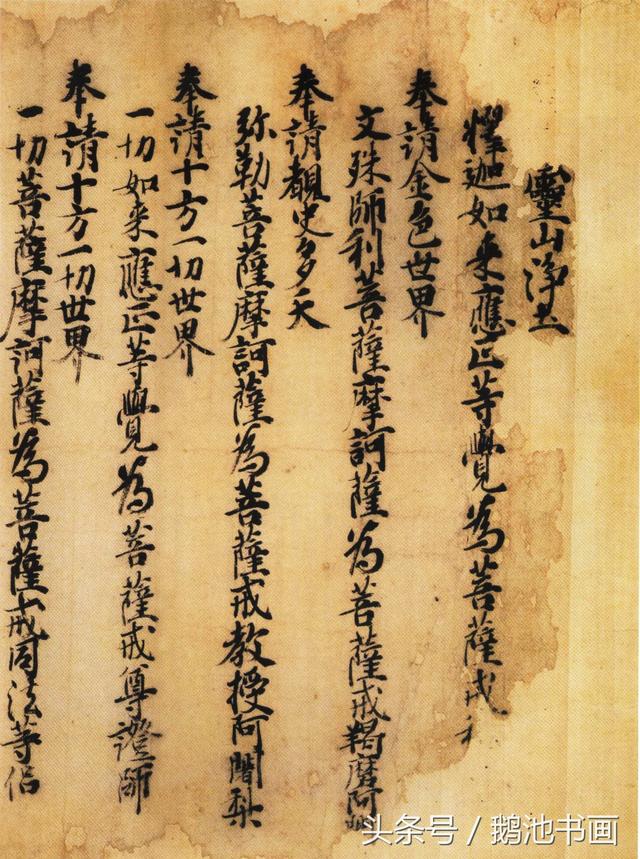 靈山净土
釋迦如来應正等覺為菩薩戒
奉請金色世界
文殊師利菩薩摩訶薩為菩薩戒羯磨阿
奉請覩史多天
弥勒菩薩摩訶薩為菩薩戒教授阿闍梨
奉請十方一切世界
一切如来應正等覺為菩薩戒尊證師
奉請十方一切世界
一切菩薩摩訶薩為菩薩戒同法等侣
头条号／鹅池书画